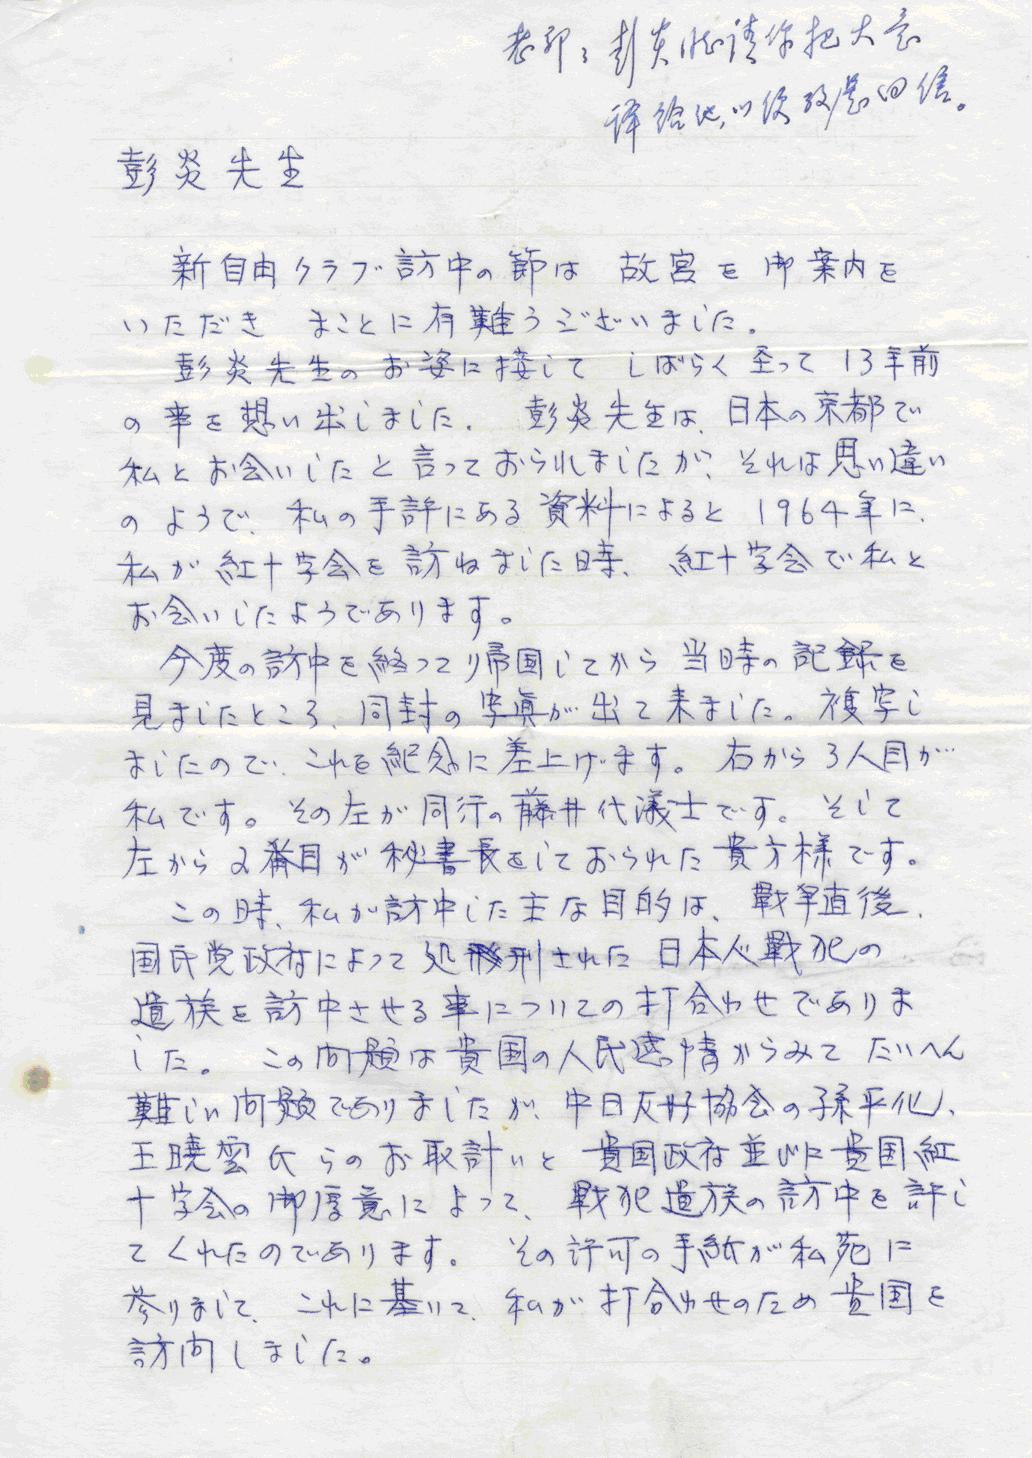 老郭：彭炎同志请你把大意
译给他，以后考虑回信。
彭炎先生
新自由クラブ訪中の節は 故宮を御案内を
いただき まことに有難うございました。
彭炎先生のお姿に接して しばらく至って 13年前
の事を想い出しました。 彭炎先生は、日本の京都で
私とお会いしたと言っておられましたが、それは思い違い
のようで、私の手許にある資料によると 1964年に、
私が紅十字会を訪ねました時、紅十字会で私と
お会いしたようであります。
今度の訪中を終って帰国してから 当時の記録を
見ましたところ、同封の写真が出て来ました。複写し
ましたので、これを紀念に差上げます。右から3人目が
私です。その左が同行の藤井代議士です。そして
左から2番目が秘書長をしておられた貴方様です。
この時、私が訪中した主な目的は、戰争直後、
国民党政府によって処刑された 日本人戰犯の
遺族を訪中させる事についての打合わせでありま
した。 この問題は貴国の人民感情からみて たいへん
難しい問題でありましたが、中日友好協会の孫平化、
王曉雲氏らのお取計いと 貴国政府並びに貴国紅
十字会の御厚意によって、戰犯遺族の訪中を許し
てくれたのであります。 その許可の手紙が私宛に
参りまして、これに基いて、私が打合わせのため貴国を
訪問しました。